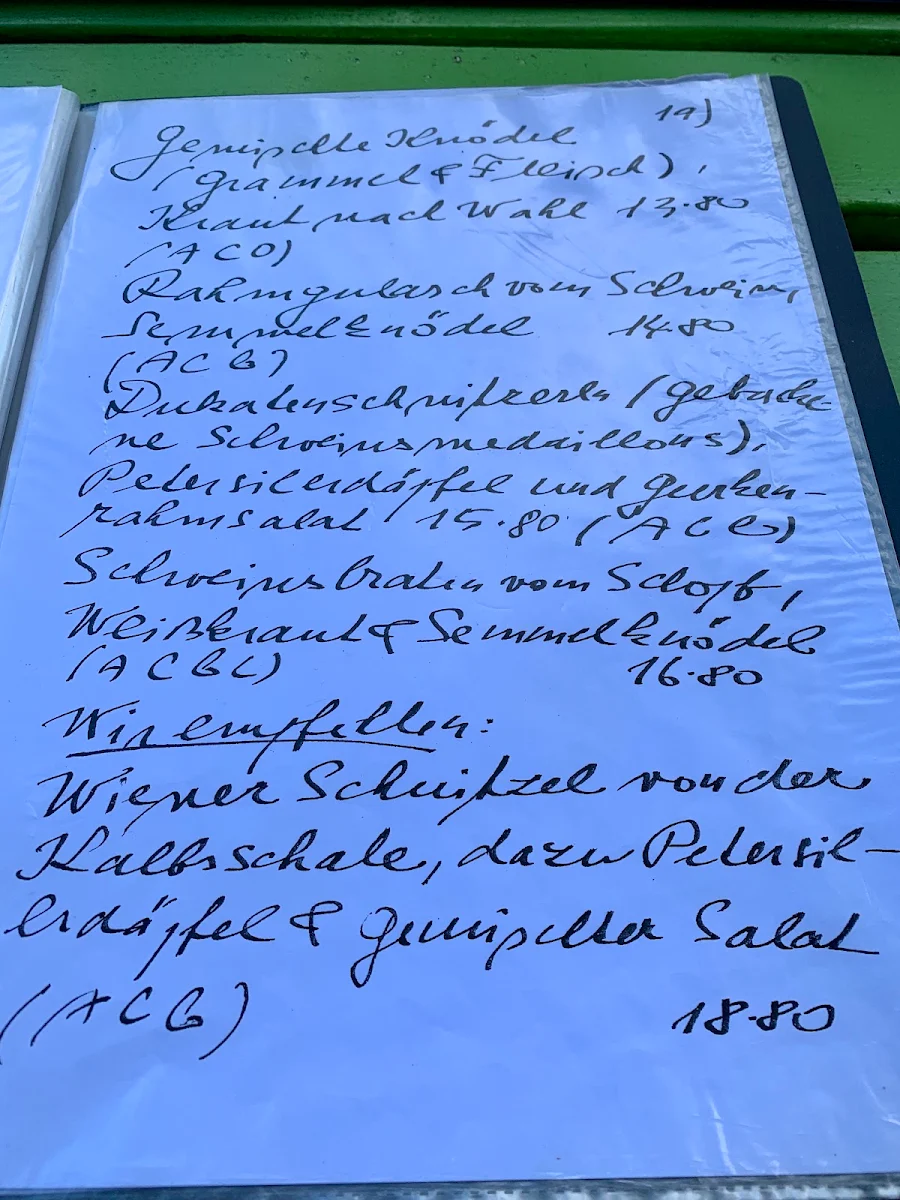 19)
Gemischte Knödel
(Grammel & Fleisch),
Kraut nach Wahl 13.80
(ACO)
Rahmgulasch vom Schwein,
Semmelknödel 14.80
(ACG)
Dukatenschnitzerln (gebacke
ne Schweinsmedaillons),
Petersilerdäpfel und Gurken-
rahmsalat 15.80 (ACG)
Schweinsbraten vom Schopf,
Weißkraut & Semmelknödel
(ACGL) 16.80
Wir empfehlen:
Wiener Schnitzel von der
Kalbsschale, dazu Petersil-
erdäpfel & gemischter Salat
(ACG) 18.80